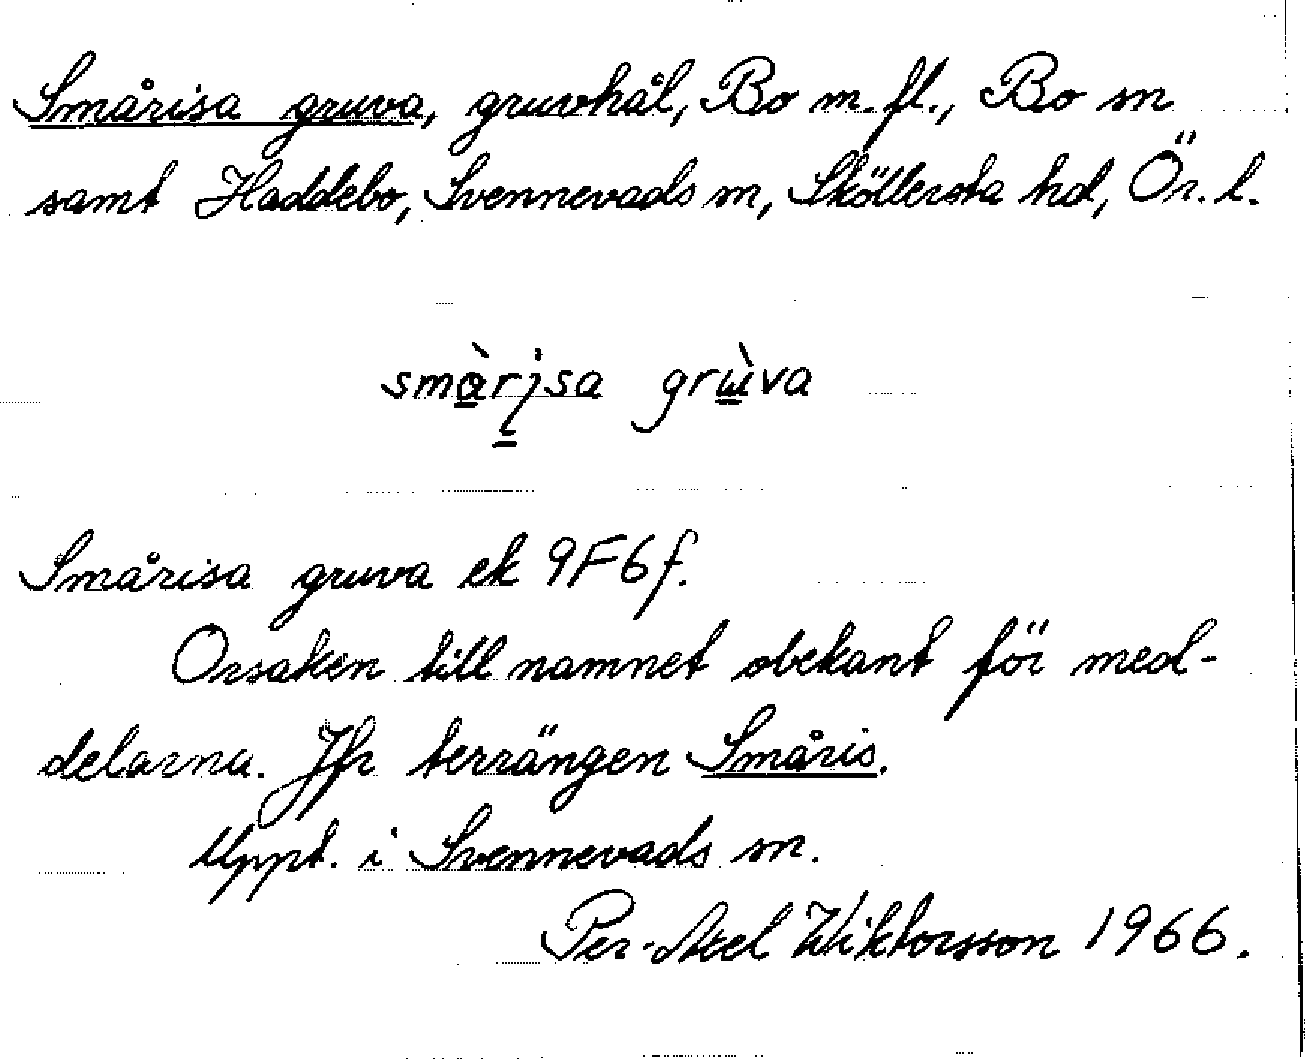 Smårisa gruva, gruvhål, Bo m. fl., Bo sn
samt Haddebo, Svennevads sn, Sköllersta hd, Ör. l.
smàrisa grɯ̀va
Smårisa gruva ek 9F6f.
Orsaken till namnet obekant för med-
delarna. Jfr terrängen Småris.
Uppt. i Svennevads sn.
Per-Axel Wiktorsson 1966.